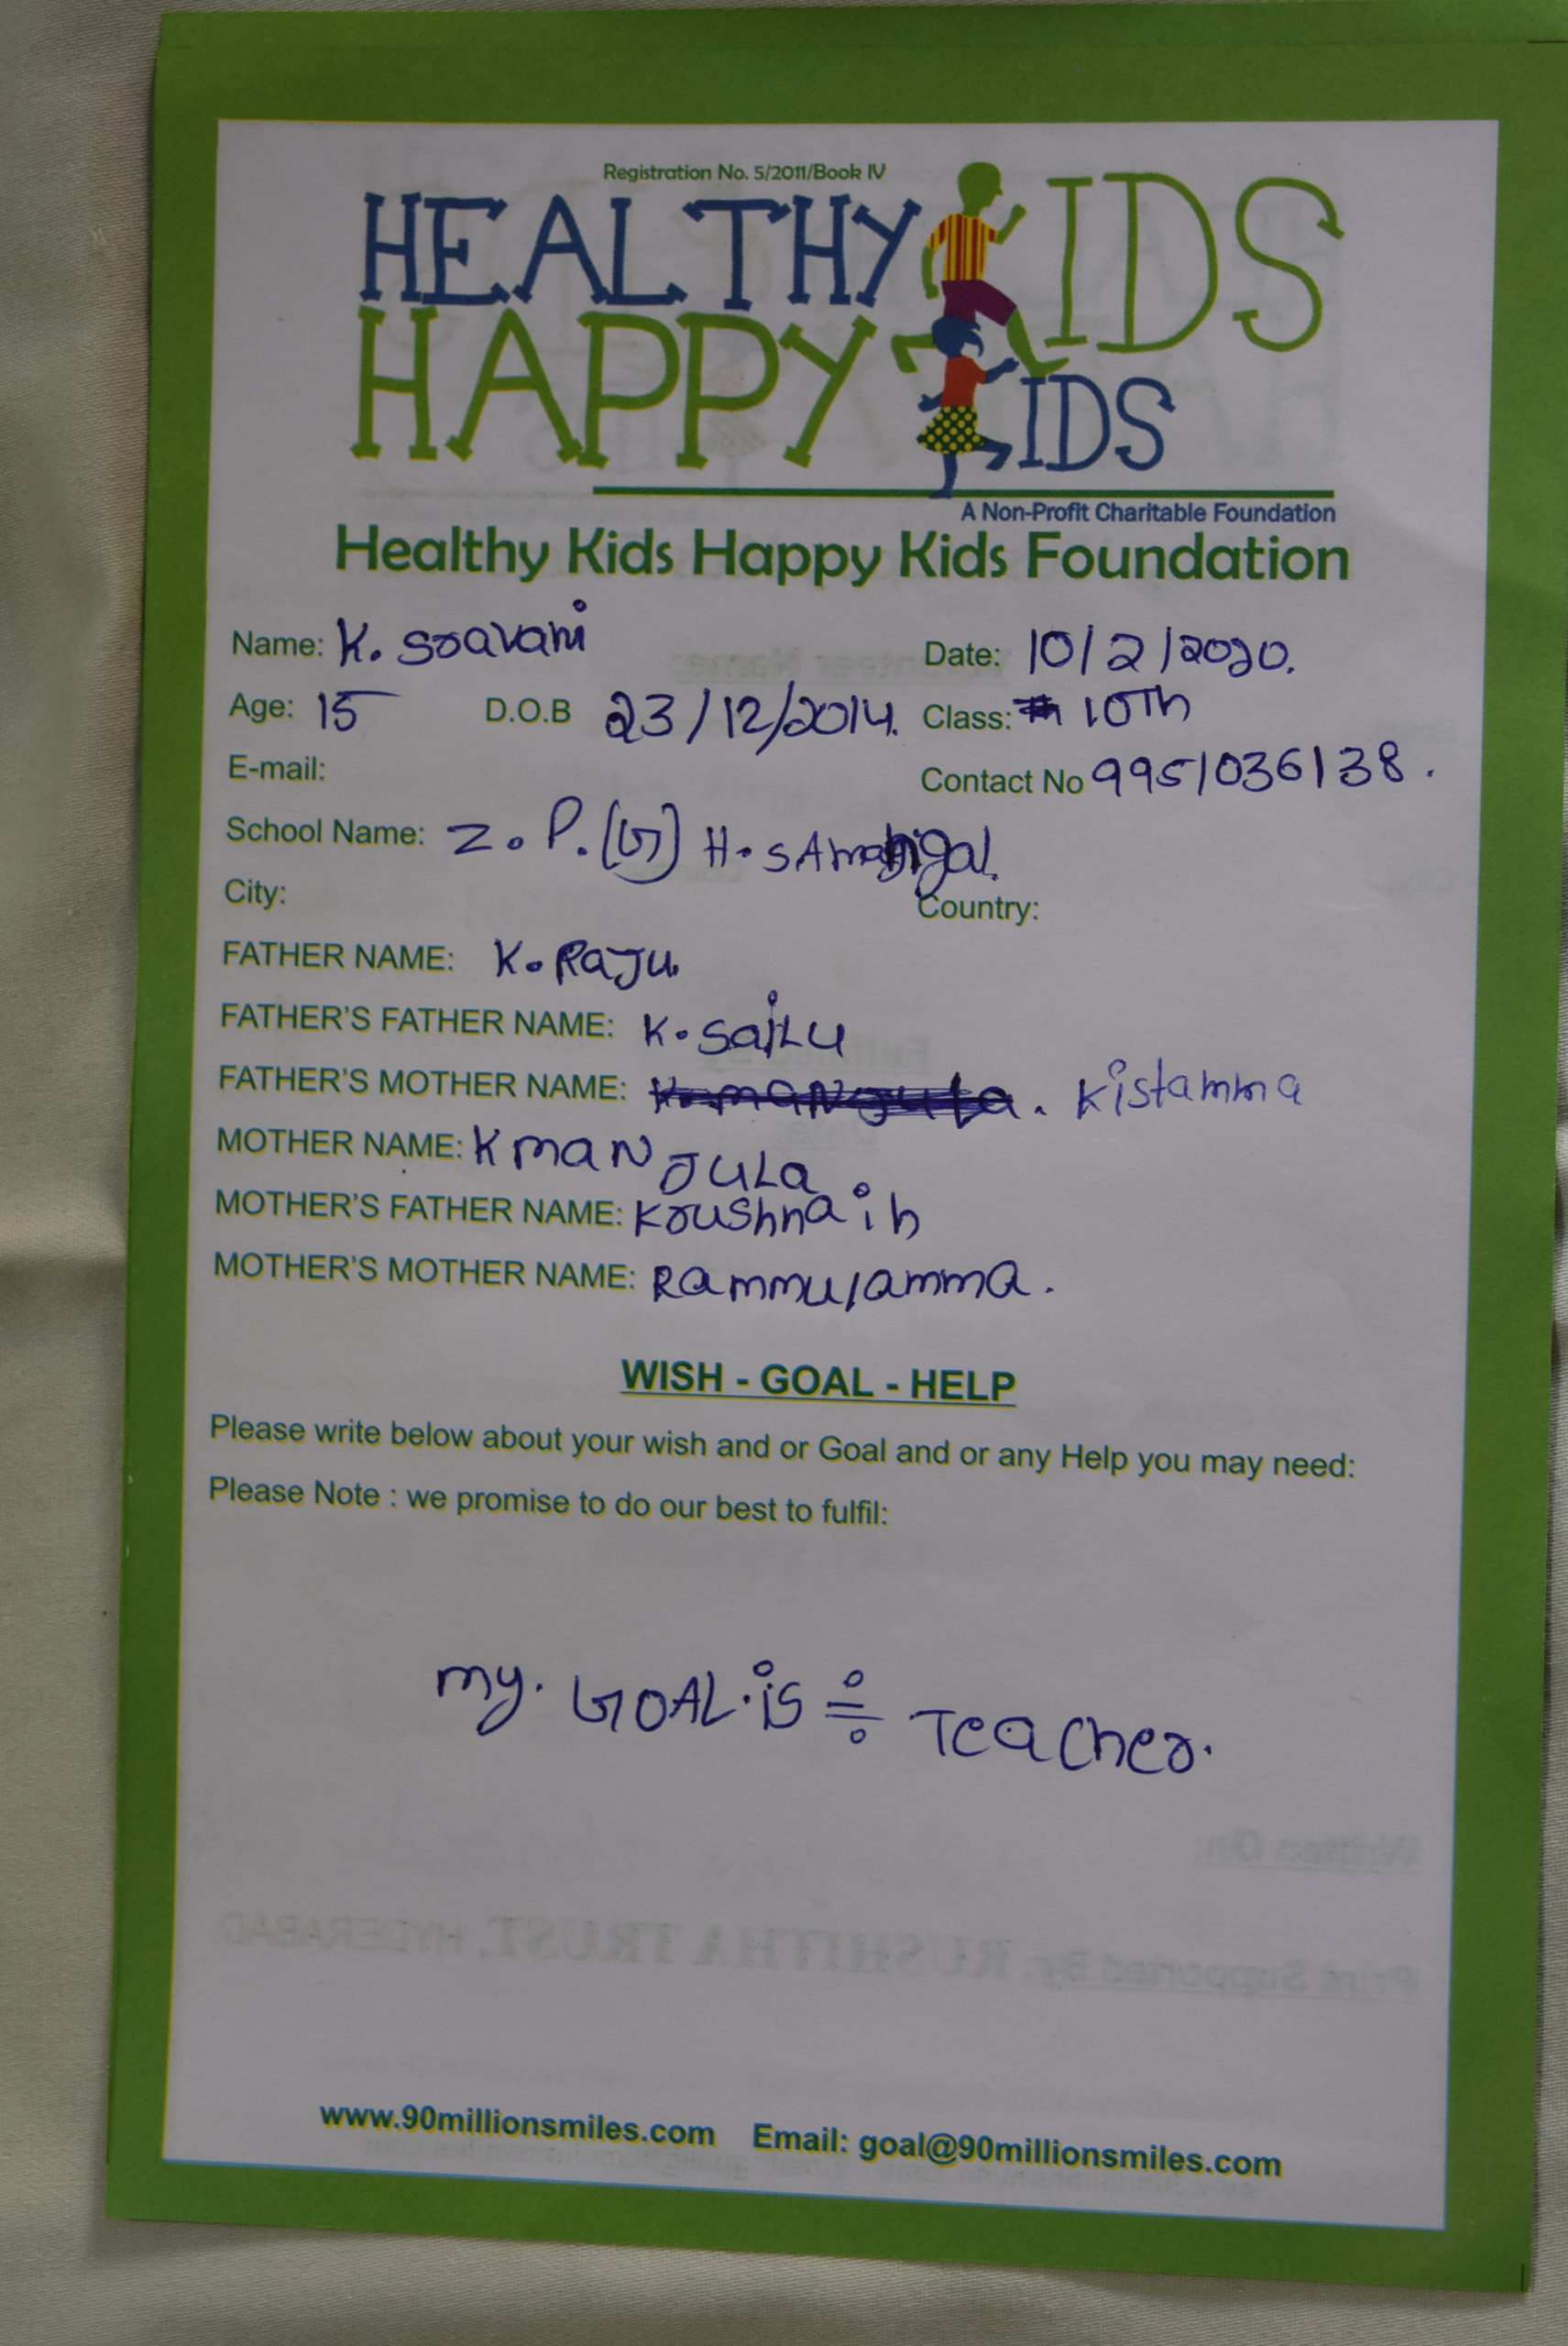 Registration No. 5/2011/Book IV
HEALTHY KIDS
HAPPY KIDS
A Non-Profit Charitable Foundation
Healthy Kids Happy Kids Foundation
Name: K. Sravani Date: 10/2/2020.
Age: 15 D.O.B 23/12/2014. Class: 10Th
E-mail: Contact No 9951036138.
School Name: Z.P.(G) H.S Amangal.
City: Country:
FATHER NAME: K. Raju
FATHER'S FATHER NAME: K. Sailu
FATHER'S MOTHER NAME: K. manjula. Kistamma
MOTHER NAME: K manJula
MOTHER'S FATHER NAME: Krushnaih
MOTHER'S MOTHER NAME: Rammulamma.
WISH - GOAL - HELP
Please write below about your wish and or Goal and or any Help you may need:
Please Note : we promise to do our best to fulfil:
my. GOAL. is ÷ Teacher.
Written On:
Print Supported By: RUSHITHA TRUST, HYDERABAD
www.90millionsmiles.com Email: goal@90millionsmiles.com